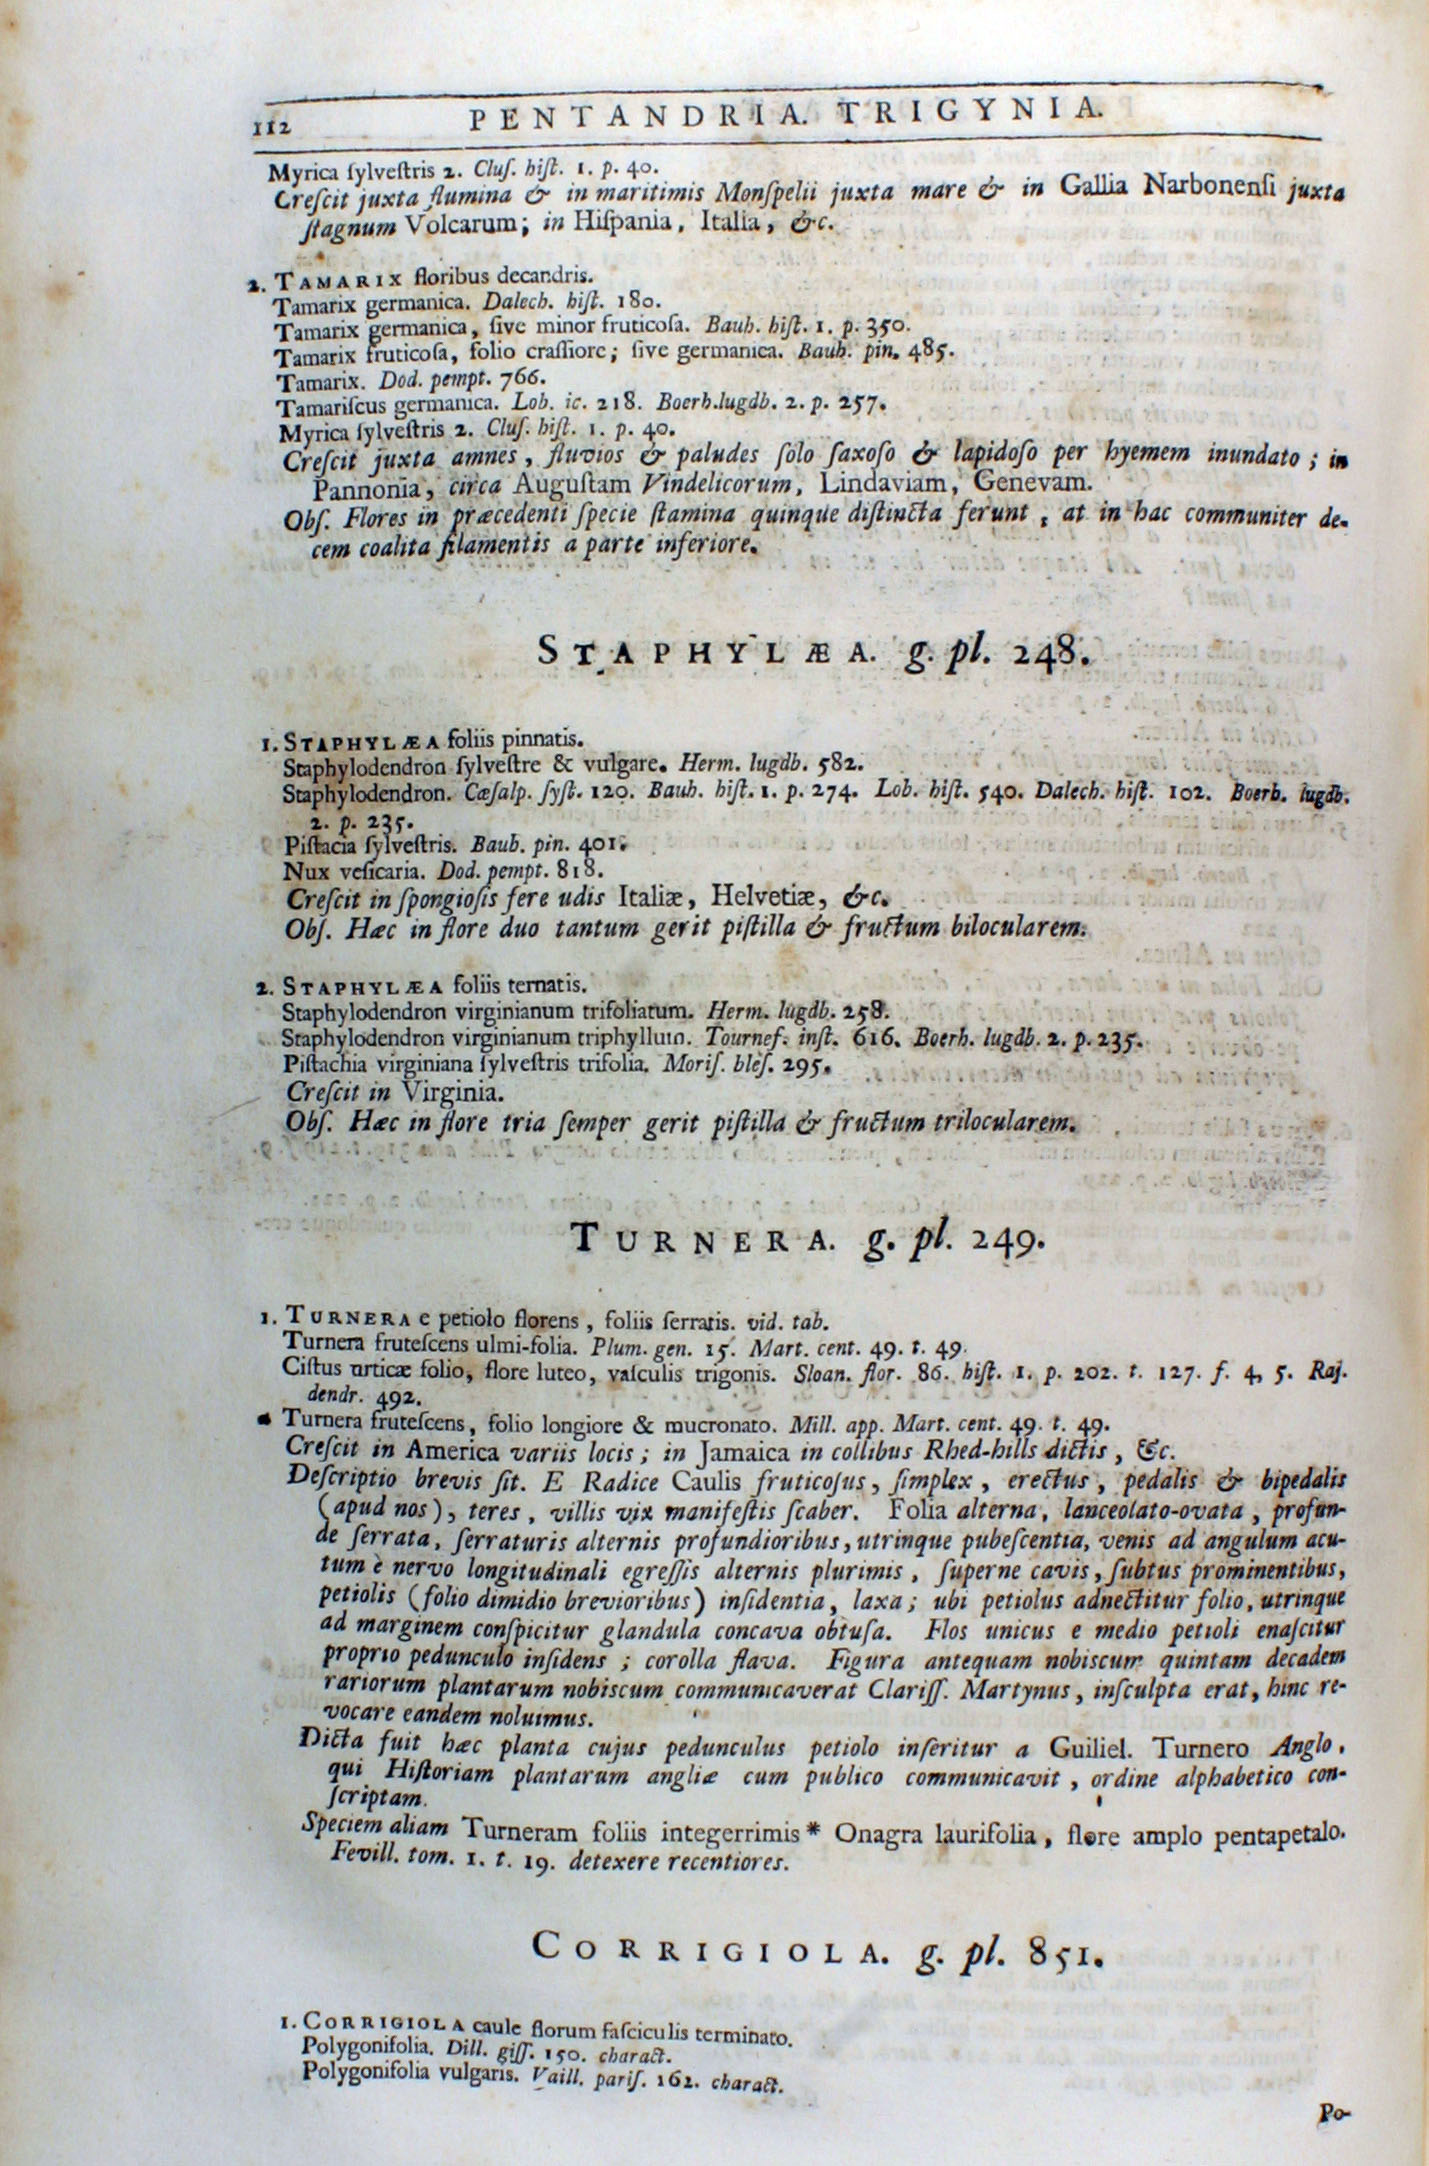 112 PENTANDRIA. TRIGYNIA.
Myrica ſylveſtris 2. Cluſ. hiſt. 1. p. 40.
Creſcit juxta flumina & in maritimis Monſpelii juxta mare & in Gallia Narbonenſi juxta
ſtagnum Volcarum; in Hiſpania, Italia, &c.
2. TAMARIX floribus decandris.
Tamarix germanica. Dalech. hiſt. 180.
Tamarix germanica, ſive minor fruticoſa. Bauh. hiſt. 1. p. 350.
Tamarix fruticoſa, folio craſſiore; ſive germanica. Bauh. pin. 485.
Tamarix. Dod. pempt. 766.
Tamariſcus germanica. Lob. ic. 218. Boerh. lugdb. 2. p. 257.
Myrica ſylveſtris 2. Cluſ. hiſt. 1. p. 40.
Creſcit juxta amnes, fluvios & paludes ſolo ſaxoſo & lapidoſo per hyemem inundato; in
Pannonia, circa Auguſtam Vindelicorum, Lindaviam, Genevam.
Obſ. Flores in præcedenti ſpecie ſtamina quinque diſtincta ferunt, at in hac communiter de-
cem coalita filamentis a parte inferiore.
STAPHYLÆA. g. pl. 248.
1. STAPHYLÆA foliis pinnatis.
Staphylodendron ſylveſtre & vulgare. Herm. lugdb. 582.
Staphylodendron. Cæſalp. ſyſt. 120. Bauh. hiſt. 1. p. 274. Lob. hiſt. 540. Dalech. hiſt. 102. Boerh. lugdb.
2. p. 235.
Piſtacia ſylveſtris. Bauh. pin. 401.
Nux veſicaria. Dod. pempt. 818.
Creſcit in ſpongioſis fere udis Italiæ, Helvetiæ, &c.
Obſ. Hæc in flore duo tantum gerit piſtilla & fructum bilocularem.
2. STAPHYLÆA foliis ternatis.
Staphylodendron virginianum trifoliatum. Herm. lugdb. 258.
Staphylodendron virginianum triphyllum. Tournef. inſt. 616. Boerh. lugdb. 2. p. 235.
Piſtachia virginiana ſylveſtris trifolia. Moriſ. bleſ. 295.
Creſcit in Virginia.
Obſ. Hæc in flore tria ſemper gerit piſtilla & fructum trilocularem.
TURNERA. g. pl. 249.
1. TURNERA e petiolo florens, foliis ſerratis. vid. tab.
Turnera fruteſcens ulmi-folia. Plum. gen. 15. Mart. cent. 49. t. 49.
Ciſtus urticæ folio, flore luteo, vaſculis trigonis. Sloan. flor. 86. hiſt. 1. p. 202. t. 127. f. 4, 5. Raj.
dendr. 492.
Turnera fruteſcens, folio longiore & mucronato. Mill. app. Mart. cent. 49. t. 49.
Creſcit in America variis locis; in Jamaica in collibus Rhed-hills dictis, &c.
Deſcriptio brevis ſit. E Radice Caulis fruticoſus, ſimplex, erectus, pedalis & bipedalis
(apud nos), teres, villis vix manifeſtis ſcaber. Folia alterna, lanceolato-ovata, profun-
de ſerrata, ſerraturis alternis profundioribus, utrinque pubeſcentia, venis ad angulum acu-
tum e nervo longitudinali egreſſis alternis plurimis, ſuperne cavis, ſubtus prominentibus,
petiolis (folio dimidio brevioribus) inſidentia, laxa; ubi petiolus adnectitur folio, utrinque
ad marginem conſpicitur glandula concava obtuſa. Flos unicus e medio petioli enaſcitur
proprio pedunculo inſidens; corolla flava. Figura antequam nobiscum quintam decadem
rariorum plantarum nobiscum communicaverat Clariſſ. Martynus, inſculpta erat, hinc re-
vocare eandem noluimus.
Dicta fuit hæc planta cujus pedunculus petiolo inſeritur a Guiliel. Turnero Anglo,
qui Hiſtoriam plantarum angliæ cum publico communicavit, ordine alphabetico con-
ſcriptam.
Speciem aliam Turneram foliis integerrimis * Onagra laurifolia, flore amplo pentapetalo.
Fevill. tom. 1. t. 19. detexere recentiores.
CORRIGIOLA. g. pl. 851.
1. CORRIGIOLA caule florum faſciculis terminato.
Polygonifolia. Dill. giſſ. 150. charact.
Polygonifolia vulgaris. Vaill. pariſ. 162. charact.
Po-